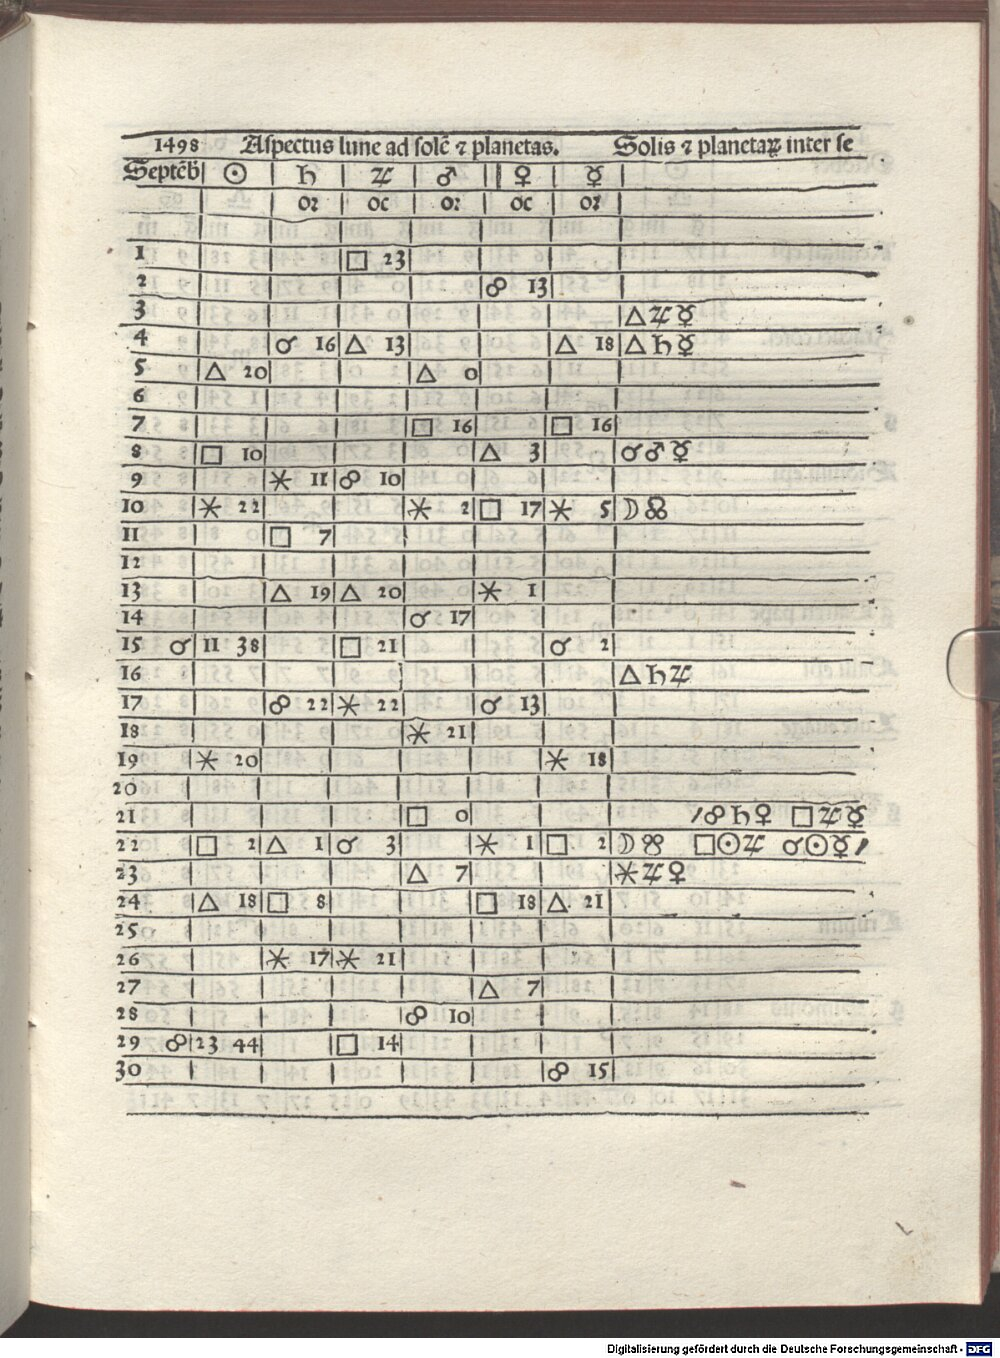 1498 Aspectus lune ad solē ⁊ planetas. Solis ⁊ planetaꝝ inter se
Septēb ☉ ♄ ♃ ♂ ♀ ☿
oꝛ oc oꝛ oc oꝛ
1 □ 23
2 ☍ 13
3 △ ♃ ☿
4 ☌ 16 △ 13 △ 18 △ ♄ ☿
5 △ 20 △ 0
6
7 □ 16 □ 16
8 □ 10 △ 3 ☌ ♂ ☿
9 ⚹ 11 ☍ 10
10 ⚹ 22 ⚹ 2 □ 17 ⚹ 5 ☽ ☊
11 □ 7
12
13 △ 19 △ 20 ⚹ 1
14 ☌ 17
15 ☌ 11 38 □ 21 ☌ 2
16 △ ♄ ♃
17 ☍ 22 ⚹ 22 ☌ 13
18 ⚹ 21
19 ⚹ 20 ⚹ 18
20
21 □ 0 ☍ ♄ ♀ □ ♃ ☿
22 □ 2 △ 1 ☌ 3 ⚹ 1 □ 2 ☽ ☋ □ ☉ ♃ ☌ ☉ ☿
23 △ 7 ⚹ ♃ ♀
24 △ 18 □ 8 □ 18 △ 21
25
26 ⚹ 17 ⚹ 21
27 △ 7
28 ☍ 10
29 ☍ 23 44 □ 14
30 ☍ 15
Digitalisierung gefördert durch die Deutsche Forschungsgemeinschaft - DFG